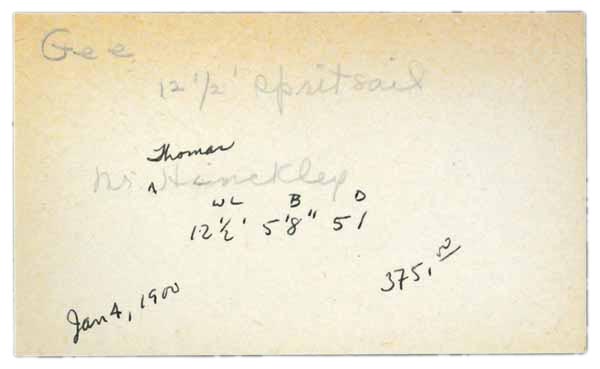 Gee
12 1/2' Spritsail
Thomas
Mr ^ Hinckley
WL B D
12 1/2' 5'8"
Jan 4, 1900
375.00